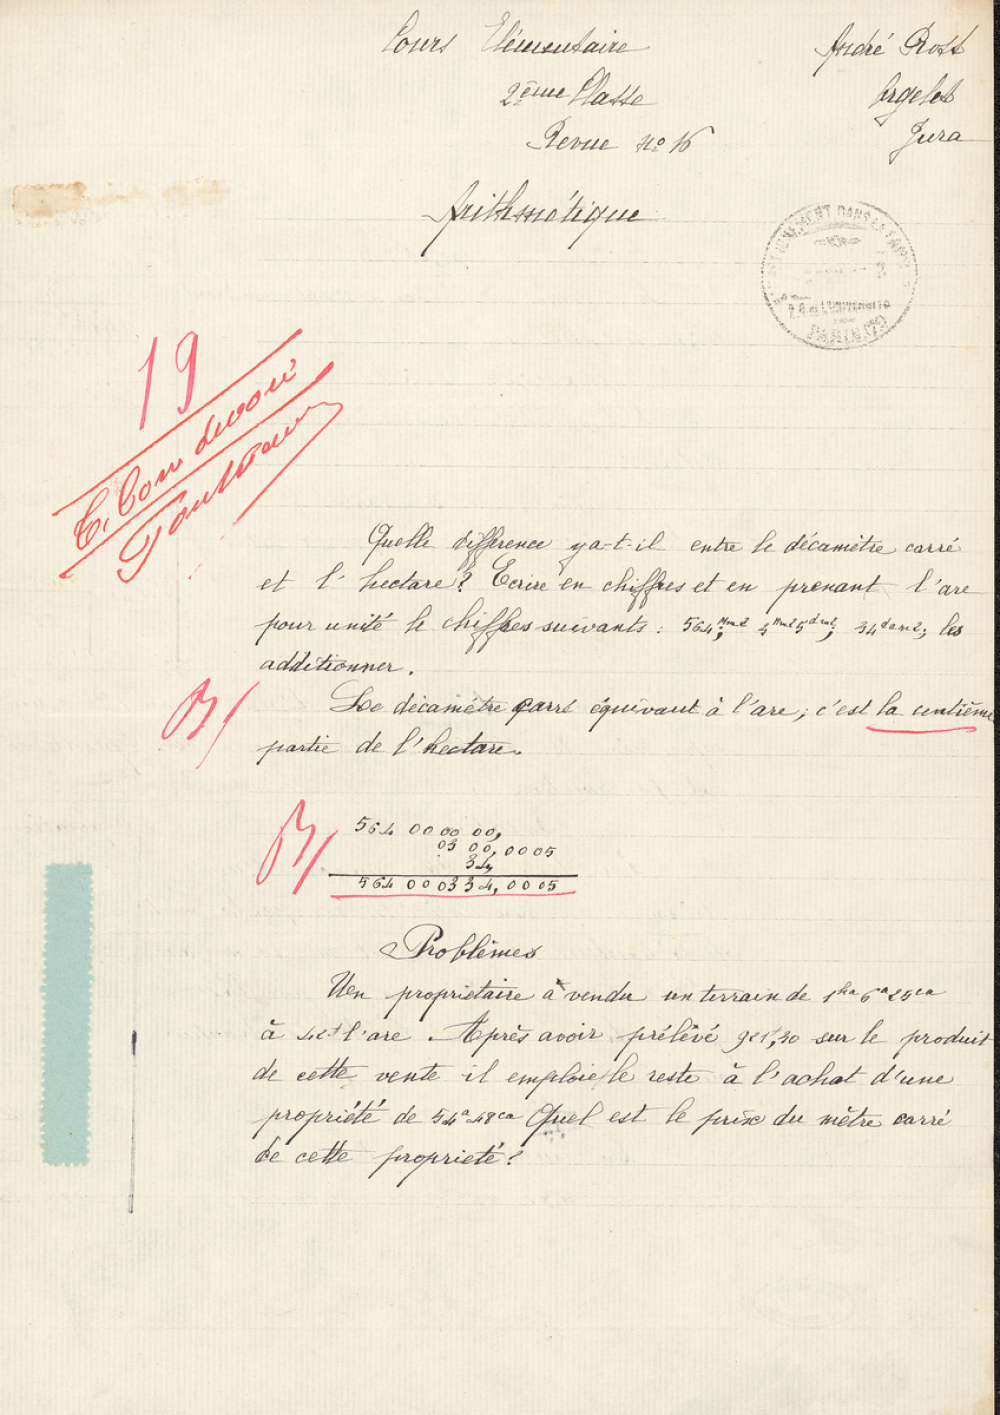 Cours Elémentaire
André Rost
2ème Classe
Argelet
Revue No 16
Jura
Arithmétique
DANS LA FAMILLE
PARIS
19
T. Bon devoir
Quelle différence y a-t-il entre le décamètre carré
et l'hectare? Ecrire en chiffres et en prenant l'are
pour unité le chiffres suivants : 564 Mm2; 3 Hm2 5 dm2; 34 dam2; les
additionner.
B
Le décamètre carré équivaut à l'are; c'est la centième
partie de l'hectare.
B
564 00 00 00,
03 00, 00 05
34,
564 00 03 34, 00 05
Problèmes
Un propriétaire a vendu un terrain de 1ha 6a 25ca
à l'are. Après avoir prélevé sur le produit
de cette vente il emploie le reste à l'achat d'une
propriété de 54a 48ca Quel est le prix du mètre carré
de cette propriété?